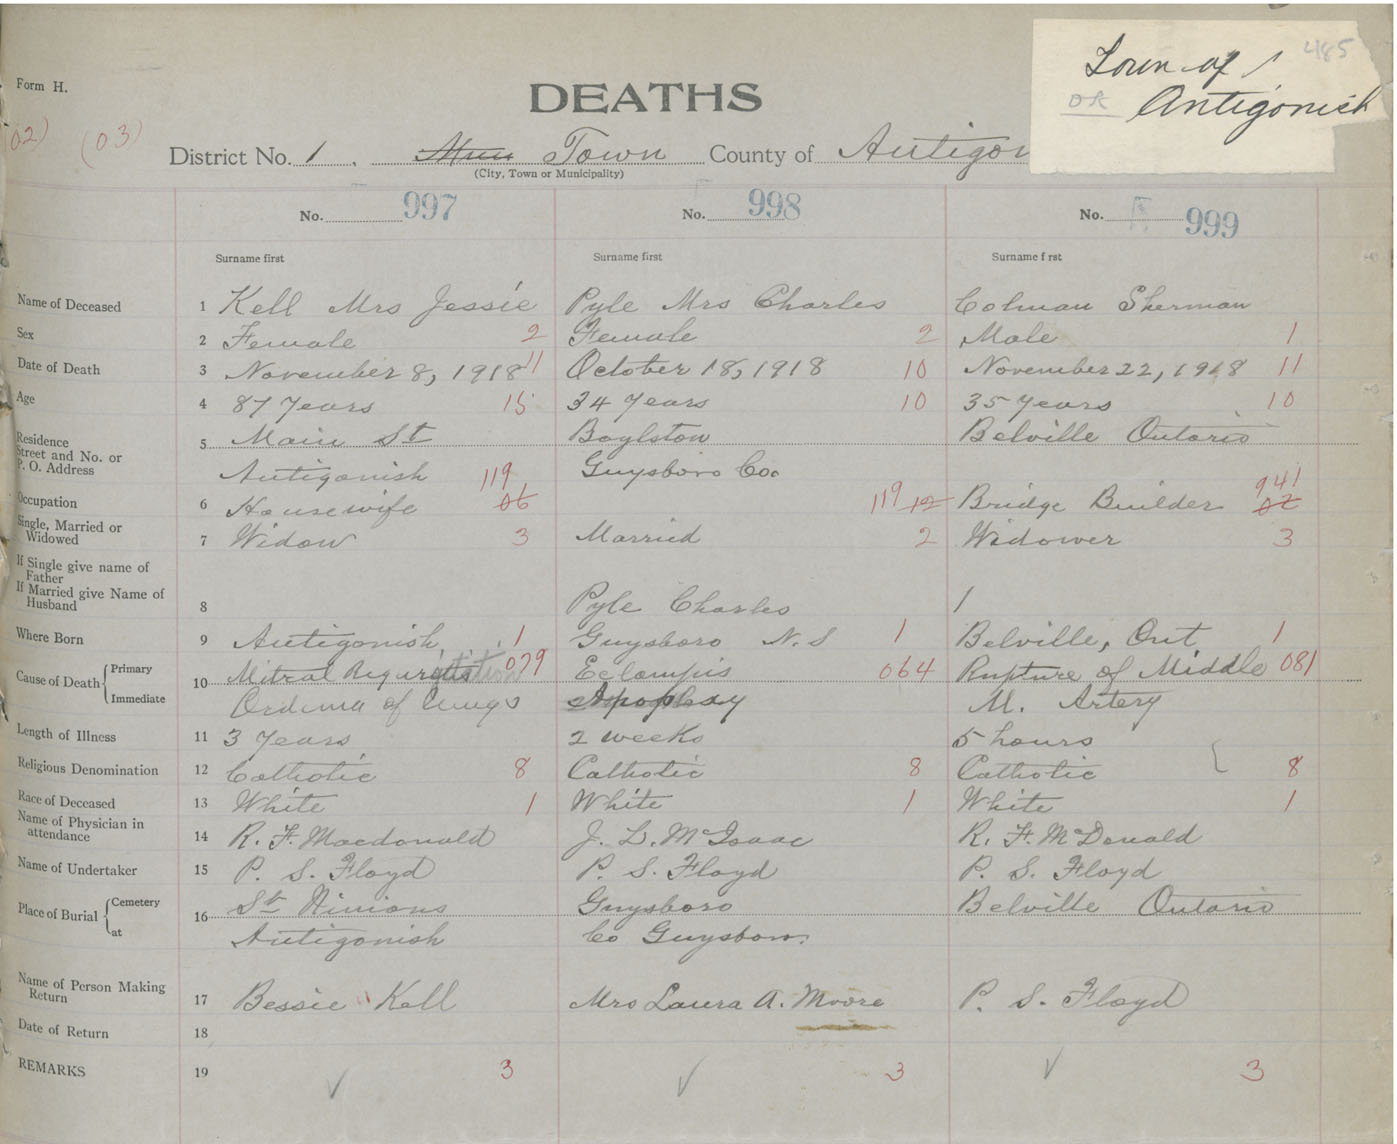 485
Town of
OR Antigonish
Form H.
DEATHS
(02) (03)
District No. 1. Mun Town County of Antigon
(City, Town or Municipality)
No. 997 No. 998 No. 999
Surname first Surname first Surname f rst
Name of Deceased 1 Kell Mrs Jessie Pyle Mrs Charles Colman Sherman
Sex 2 Female 2 Female 2 Male 1
Date of Death 3 November 8, 1918 11 October 18, 1918 10 November 22, 1918 11
Age 4 87 Years 15 34 Years 10 35 Years 10
Residence
Street and No. or
P. O. Address
5 Main St Boylston Belville Ontario
Antigonish 119 Guysboro Co.
Occupation 6 Housewife 06 119 12 Bridge Builder 941 02
Single, Married or
Widowed
7 Widow 3 Married 2 Widower 3
If Single give name of
Father
If Married give Name of
Husband
8 Pyle Charles /
Where Born 9 Antigonish, 1 Guysboro N.S 1 Belville, Ont 1
Cause of Death { Primary
Immediate
10 Mitral Regurgitation 079 Eclampis 064 Rupture of Middle 081
Ordima of Lungs Apoplexy M. Artery
Length of Illness 11 3 Years 2 weeks 5 hours
Religious Denomination 12 Catholic 8 Catholic 8 Catholic 8
Race of Deceased 13 White 1 White 1 White 1
Name of Physician in
attendance
14 R. F. Macdonald J. L. McIsaac R. F. McDonald
Name of Undertaker 15 P. S. Floyd P. S. Floyd P. S. Floyd
Place of Burial { Cemetery
at
16 St Ninions Guysboro Belville Ontario
Antigonish Co Guysboro.
Name of Person Making
Return
17 Bessie Kell Mrs Laura A. Moore P. S. Floyd
Date of Return 18
REMARKS 19 3 3 3